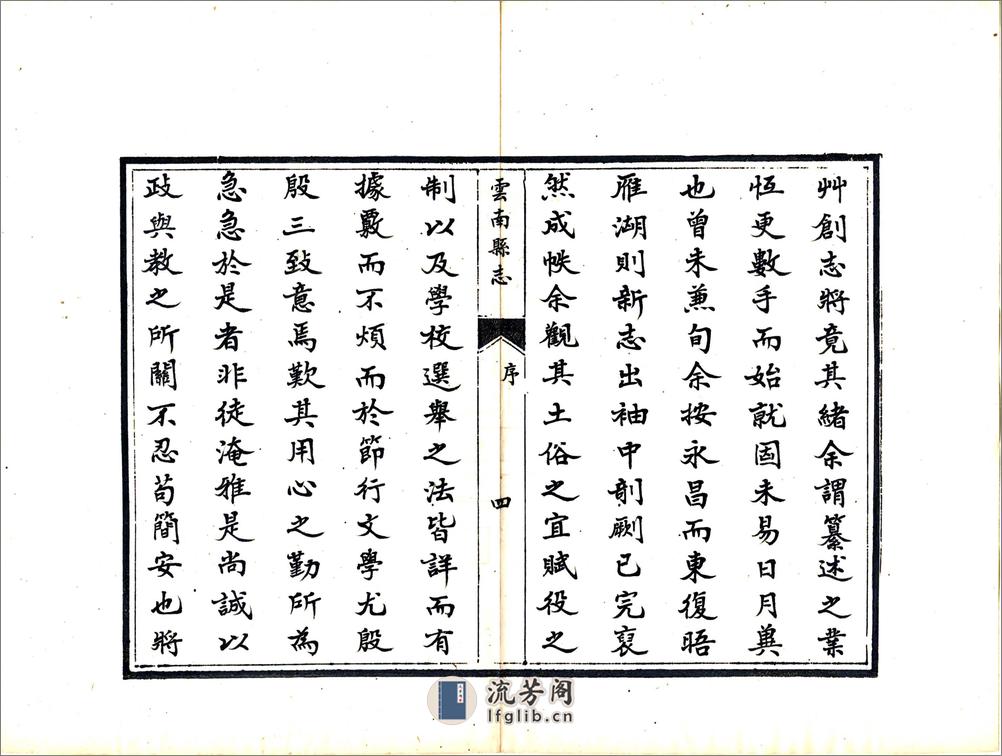 艸創志將竟其緒余謂纂述之業
恆更數手而始就固未易日月冀
也曾未兼旬余按永昌而東復晤
雁湖則新志出袖中剞劂已完裒
然成帙余觀其土俗之宜賦役之
雲南縣志
序
四
制以及學校選舉之法皆詳而有
據覈而不煩而於節行文學尤殷
殷三致意焉歎其用心之勤所為
急急於是者非徒淹雅是尚誠以
政與教之所關不忍苟簡安也將
流芳阁
lfglib.cn